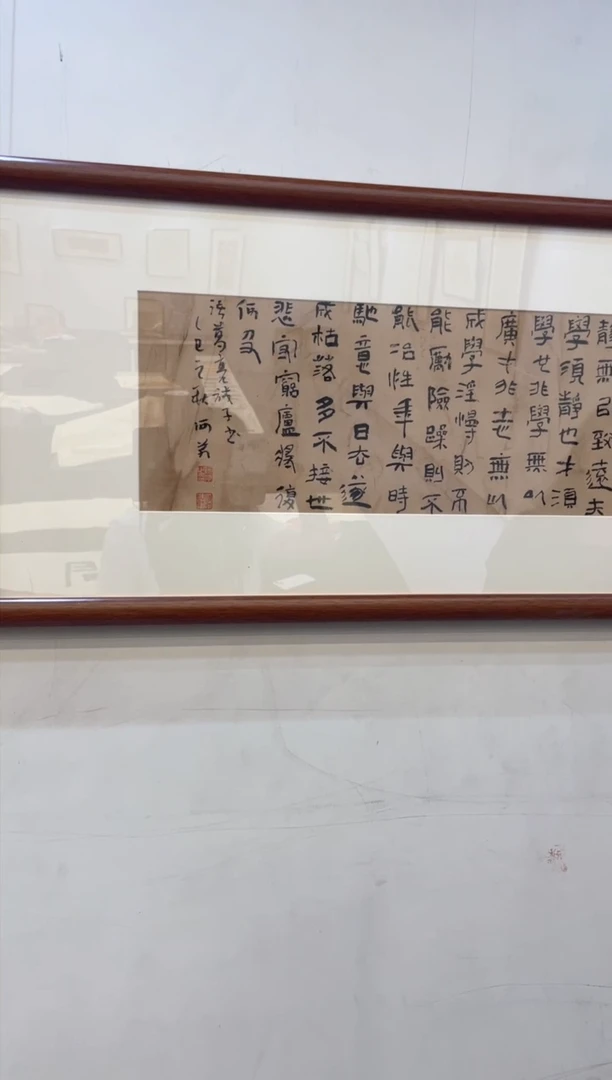 靜無以致遠夫
學須靜也才須
學也非學無以
廣才非志無以
成學淫慢則不
能勵險躁則不
能治性年與時
馳意與日去遂
成枯落多不接世
悲守窮廬將復
何及
諸葛亮誡子書
乙巳之秋